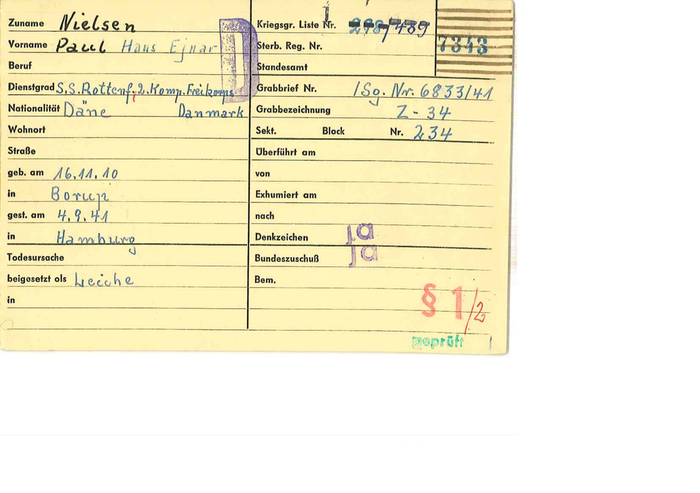 Zuname Nielsen
Vorname Paul Hans Ejnar
Beruf
Dienstgrad S.S. Rottenf. 2. Komp. Freikorps
Nationalität Däne Danmark
Wohnort
Straße
geb. am 16.11.10
in Borup
gest. am 4.9.41
in Hamburg
Todesursache
beigesetzt als Leiche
in
D
Kriegsgr. Liste Nr. 489
7343
Sterb. Reg. Nr.
Standesamt
Grabbrief Nr. /Sg. Nr. 6833/41
Grabbezeichnung Z-34
Sekt. Block Nr. 234
Überführt am
von
Exhumiert am
nach
Denkzeichen ja
Bundeszuschuß ja
Bem.
§ 1/2
geprüft